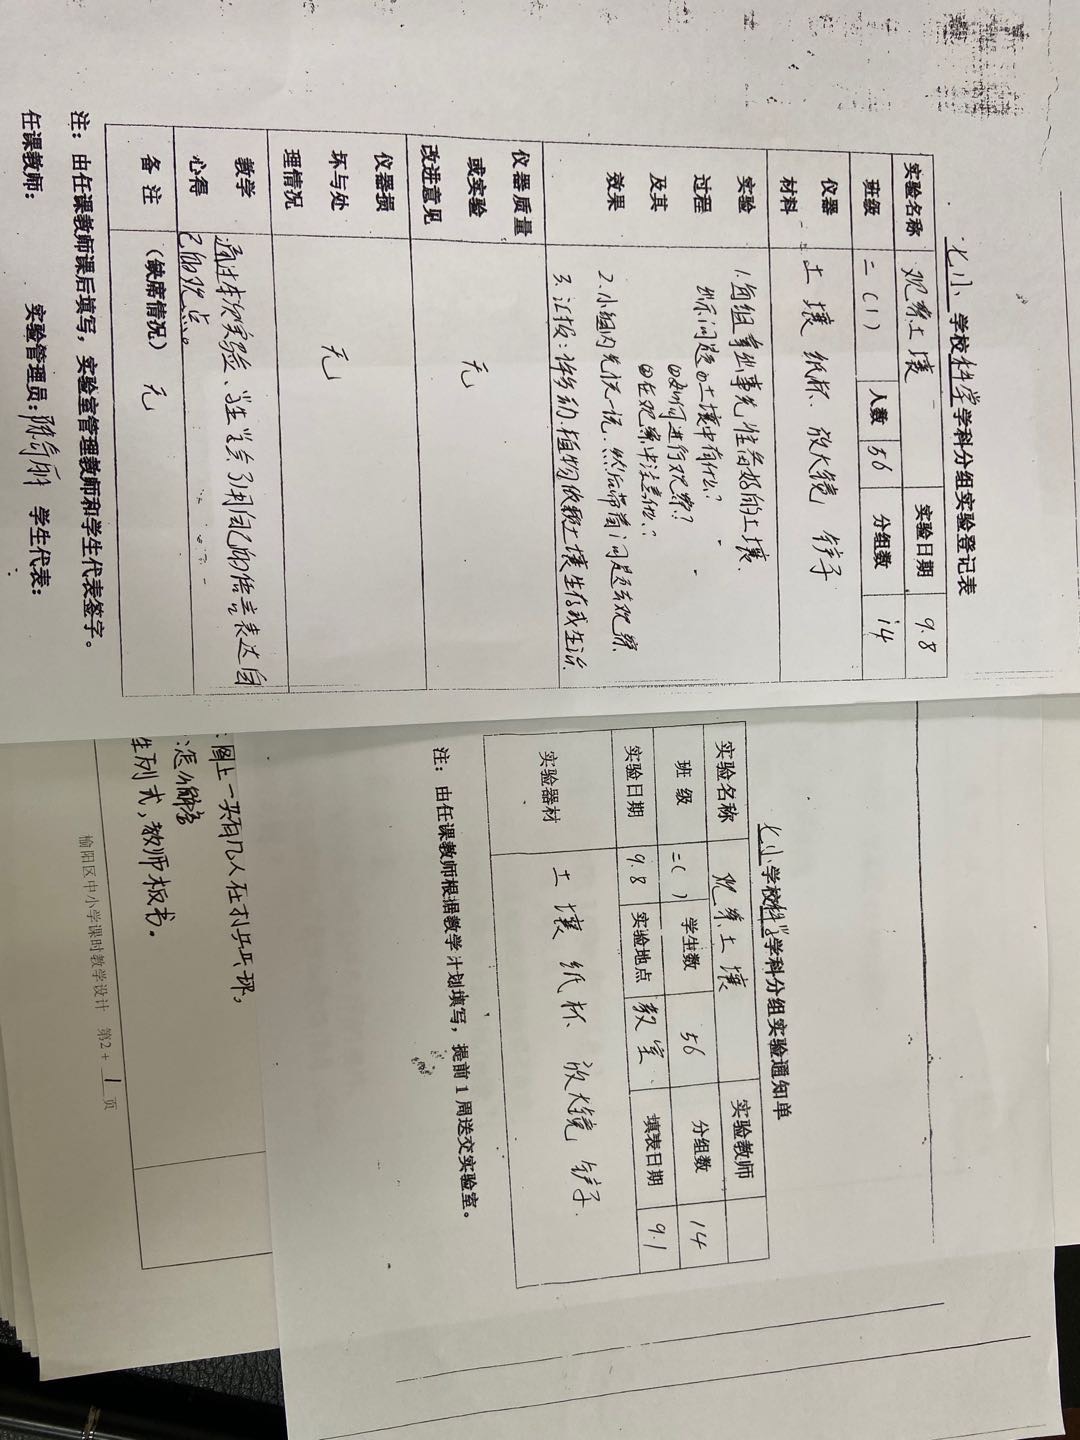 七小 学校科学学科分组实验登记表
实验名称 观察土壤 实验日期 9.8
班级 二(1) 人数 56 分组数 14
仪器材料 土壤 纸杯 放大镜 铲子
实验过程及其效果
1.每组拿出事先准备好的土壤
出示问题①土壤中有什么?
②如何进行观察?
③在观察中注意什么?
2.小组内先说一说,然后带着问题去观察
3.汇报:许多动、植物依赖土壤生存或生活
仪器质量或实验改进意见 无
仪器损坏与处理情况 无
教学心得 通过本次实验、学生学会了用自己的语言表达自
己的观点。
备注 (缺席情况) 无
注:由任课教师课后填写,实验室管理教师和学生代表签字。
任课教师: 实验管理员: 学生代表:
七小学校科学学科分组实验通知单
实验名称 观察土壤 实验教师
班级 二( ) 学生数 56 分组数 14
实验日期 9.8 实验地点 教室 填表日期 9.1
实验器材 土壤 纸杯 放大镜 铲子
注:由任课教师根据教学计划填写,提前1周送交实验室。
图上一共有几人在打乒乓球,
怎么解答
生列式,教师板书。
榆阳区中小学课时教学设计 第2+1页